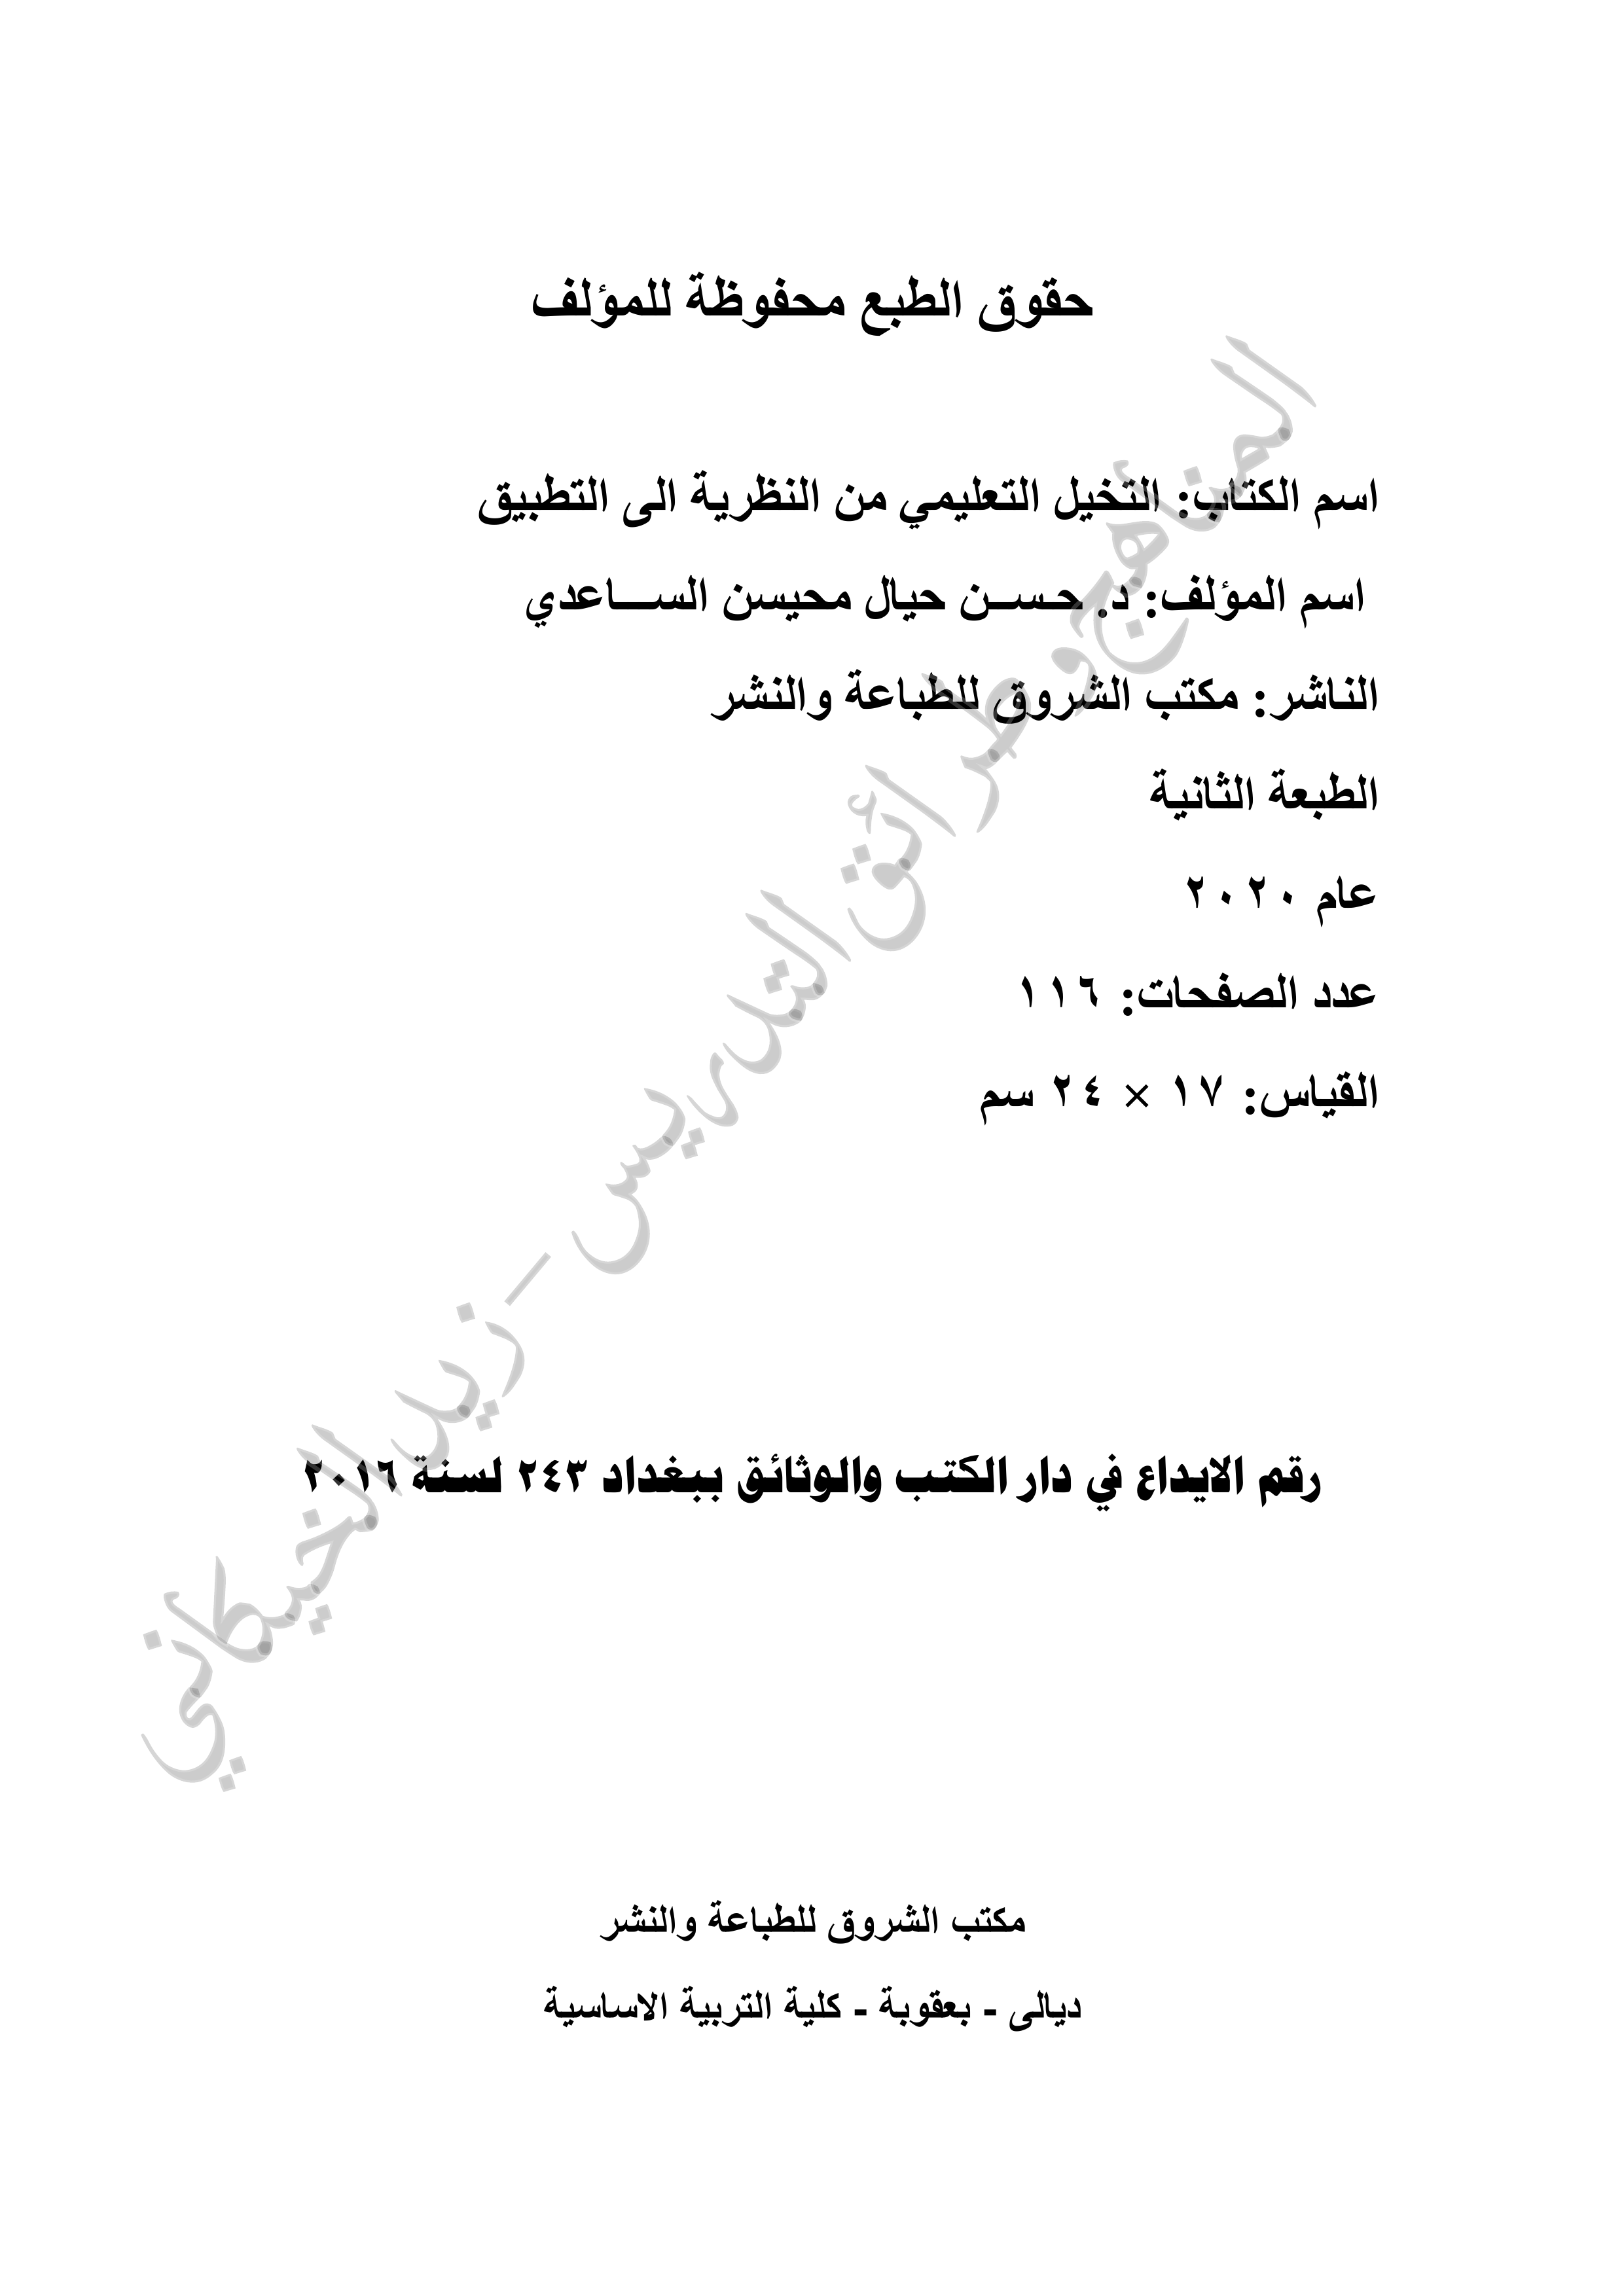 حقوق الطبع محفوظة للمؤلف
اسم الكتاب: التخيل التعليمي من النظرية الى التطبيق
اسم المؤلف: د. حـســن حيال محيسن الســـاعدي
الناشر: مكتب الشروق للطباعة والنشر
الطبعة الثانية
عام ٢٠٢٠
عدد الصفحات: ١١٦
القياس: ١٧ × ٢٤ سم
المناهج وطرائق التدريس - زيد الخيكاني
رقم الايداع في دار الكتب والوثائق ببغداد ٢٤٣ لسنة ٢٠١٦
مكتب الشروق للطباعة والنشر
ديالى - بعقوبة - كلية التربية الاساسية